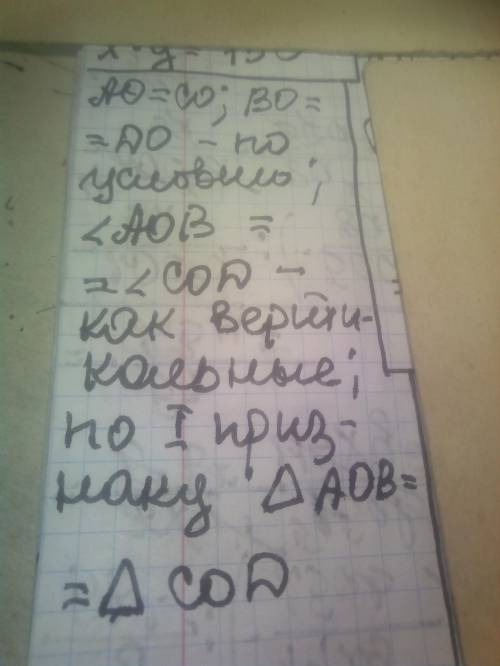 AO=CO; BO=
=DO - по
условию;
<AOB =
=<COD -
как верти-
кальные;
по I приз-
наку △AOB=
=△COD